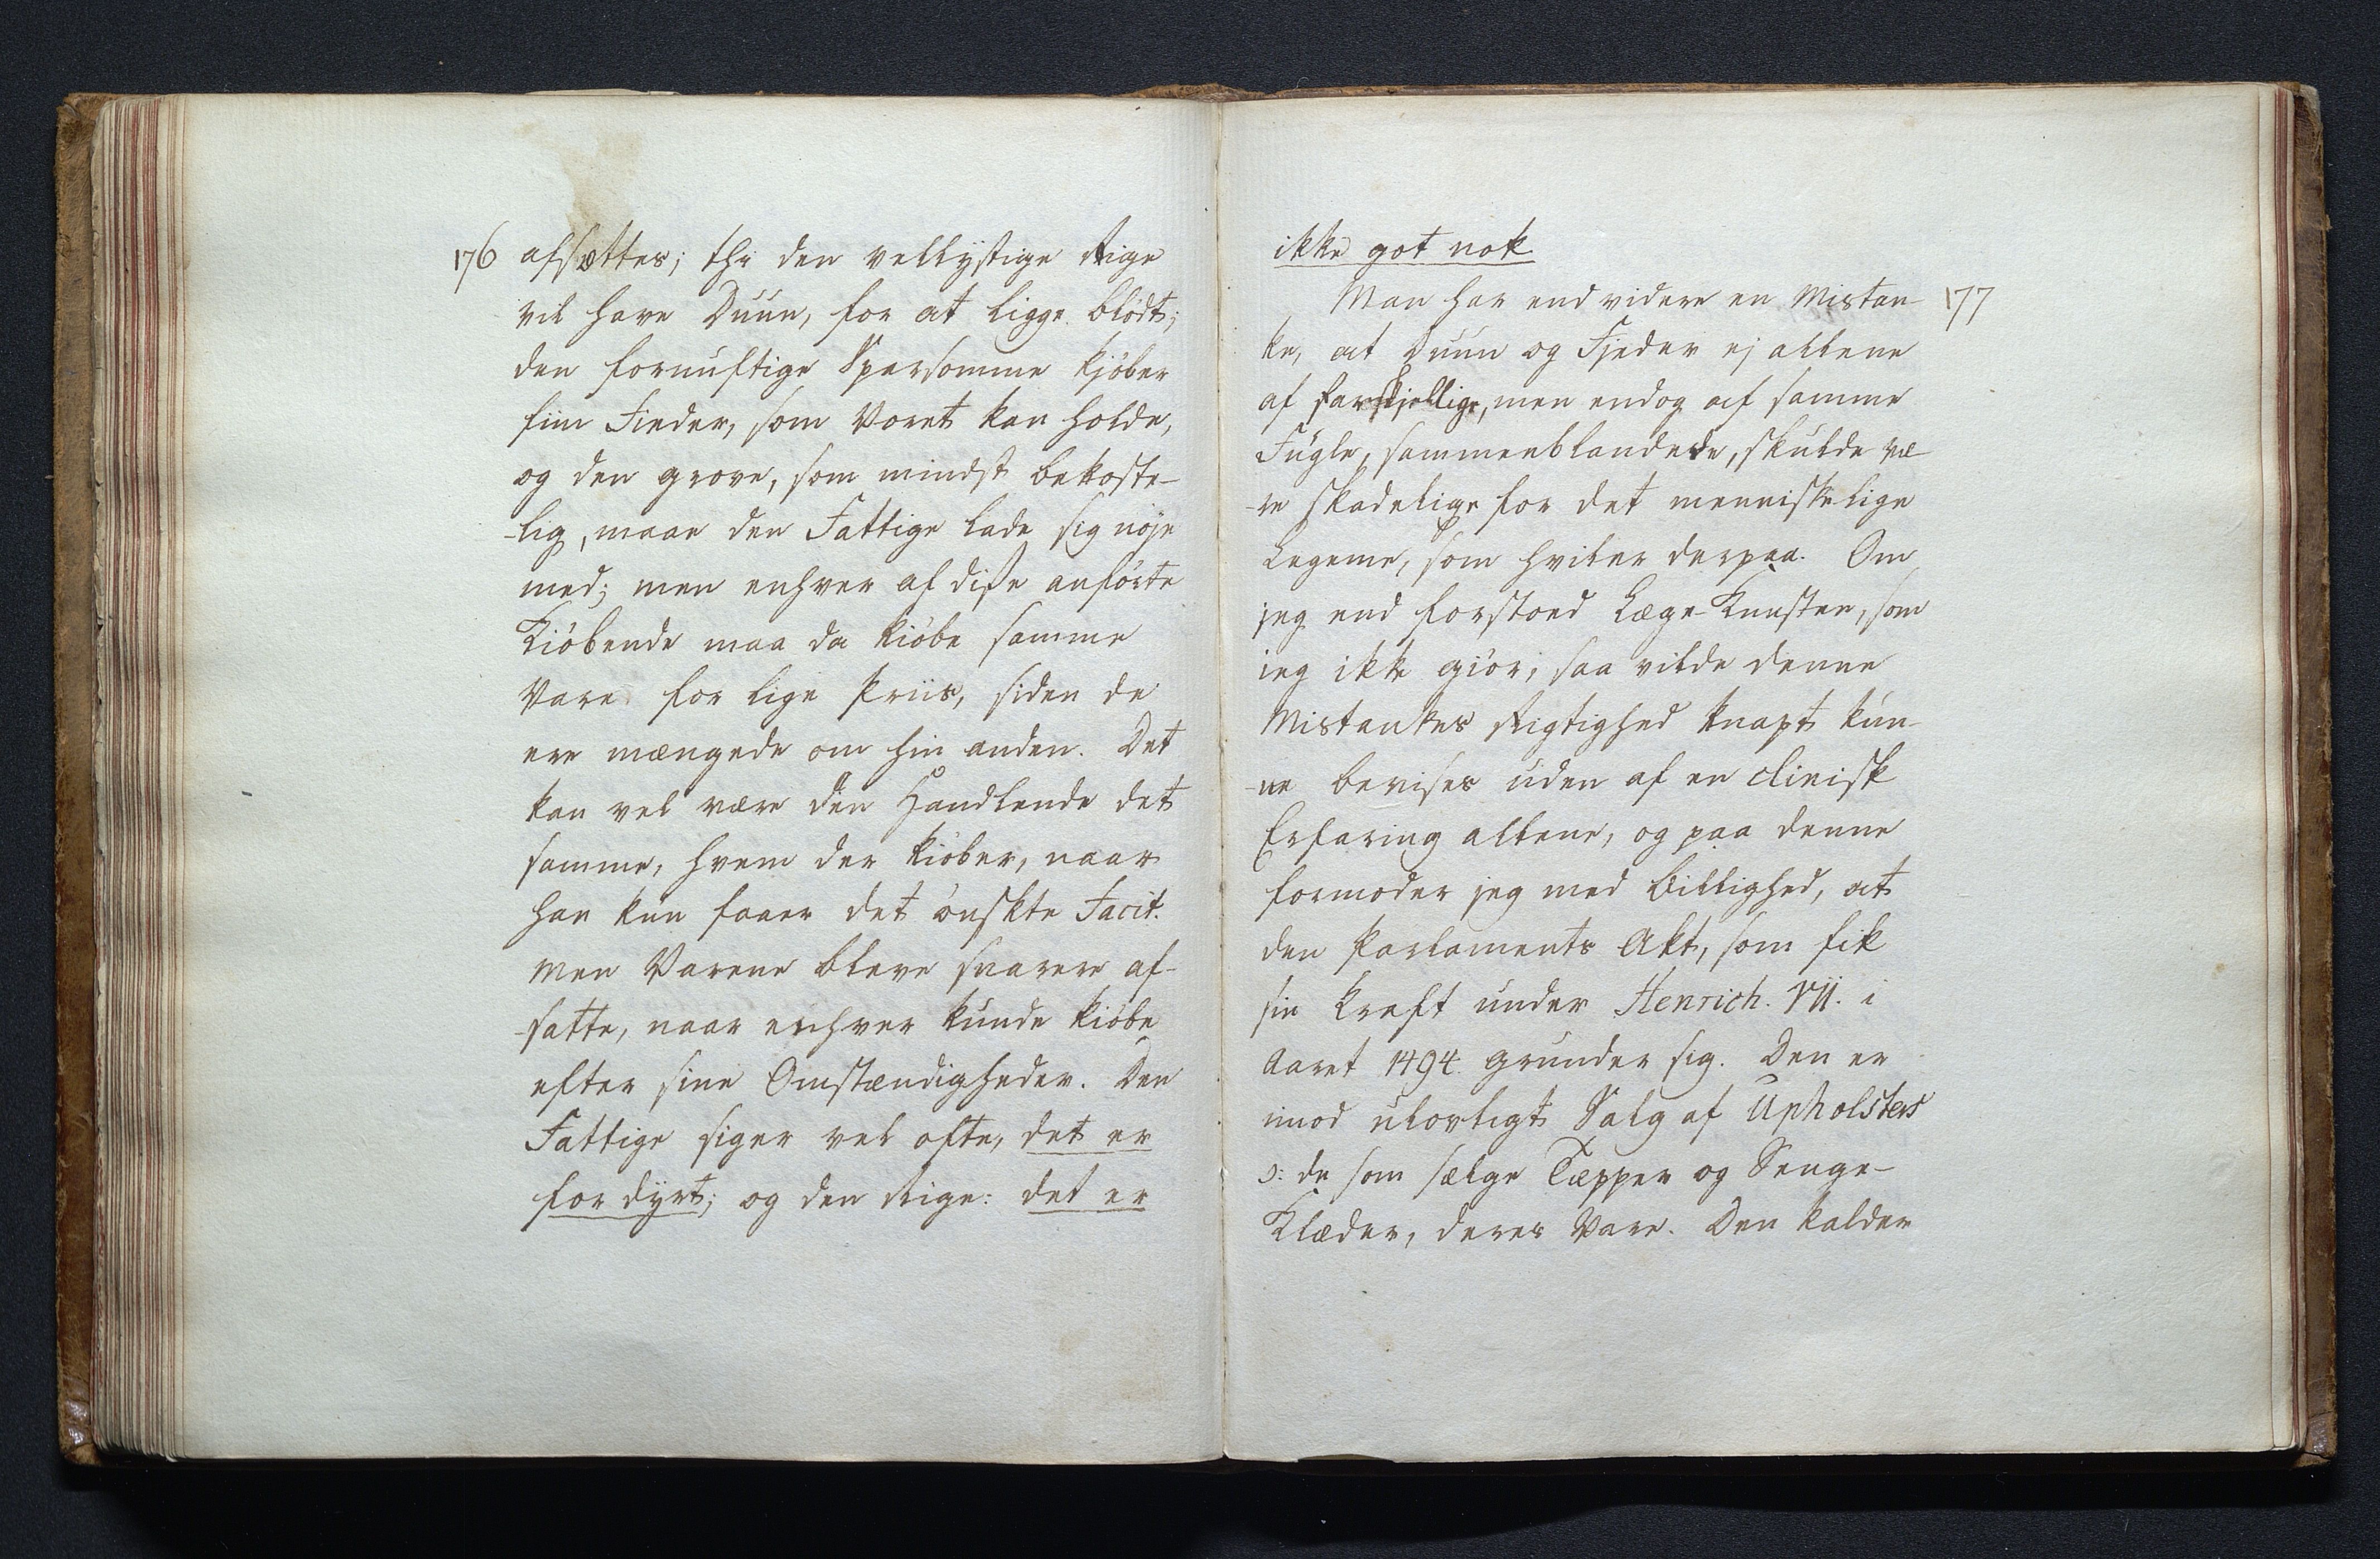 176 afsættes; thi den vellystige Rige
vil have Duun, for at ligge blødt;
den fornuftige Sparsomme kjøber
fiin Fieder, som Voret kan holde,
og den grove, som mindst bekoste-
-lig, maae den Fattige lade sig nøje
med; men enhver af disse anførte
Kiøbende maa da kiøbe samme
Vare for lige Priis, siden de
ere mængede om hin anden. Det
kan vel være den Handlende det
samme, hvem der kiøber, naar
han kun faaer det ønskte Facit.
men Varene bleve snarere af-
-satte, naar enhver kunde kiøbe
efter sine Omstændigheder. Den
Fattige siger vel ofte, det er
for dyrt; og den Rige: det er
ikke got nok
Man har end videre en Mistan- 177
ke, at Duun og Fjeder ej allene
af forskjellige, men endog af samme
Fugle, sammenblandede, skulde væ-
-re skadelige for det menniskelige
Legeme, som hviler derpaa. Om
jeg end forstoed Læge-Kunsten, som
jeg ikke giør; saa vilde denne
Mistankes Rigtighed knapt kun-
-ne bevises uden af en clinisk
Erfaring allene, og paa denne
formoder jeg med Billighed, at
den Parlaments Akt, som fik
sin Kraft under Henrich. VII. i
Aaret 1494. grunder sig. Den er
imod ulovligt Salg af Upholsters
ɔ: de som sælge Tæpper og Senge-
Klæder, deres Vare. Den kalder